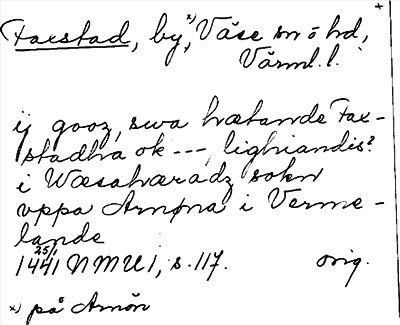 +
Faxstad, by, x) Väse sn o hd,
Värml. l.
ij gooz, swa hætande Fax-
stadha ok --- lighiandis?
i Wæsahæradz sokn
vppa Arnøna i Verme-
lande
25/1 1441 NMU 1, s. 117. orig.
x) på Arnön